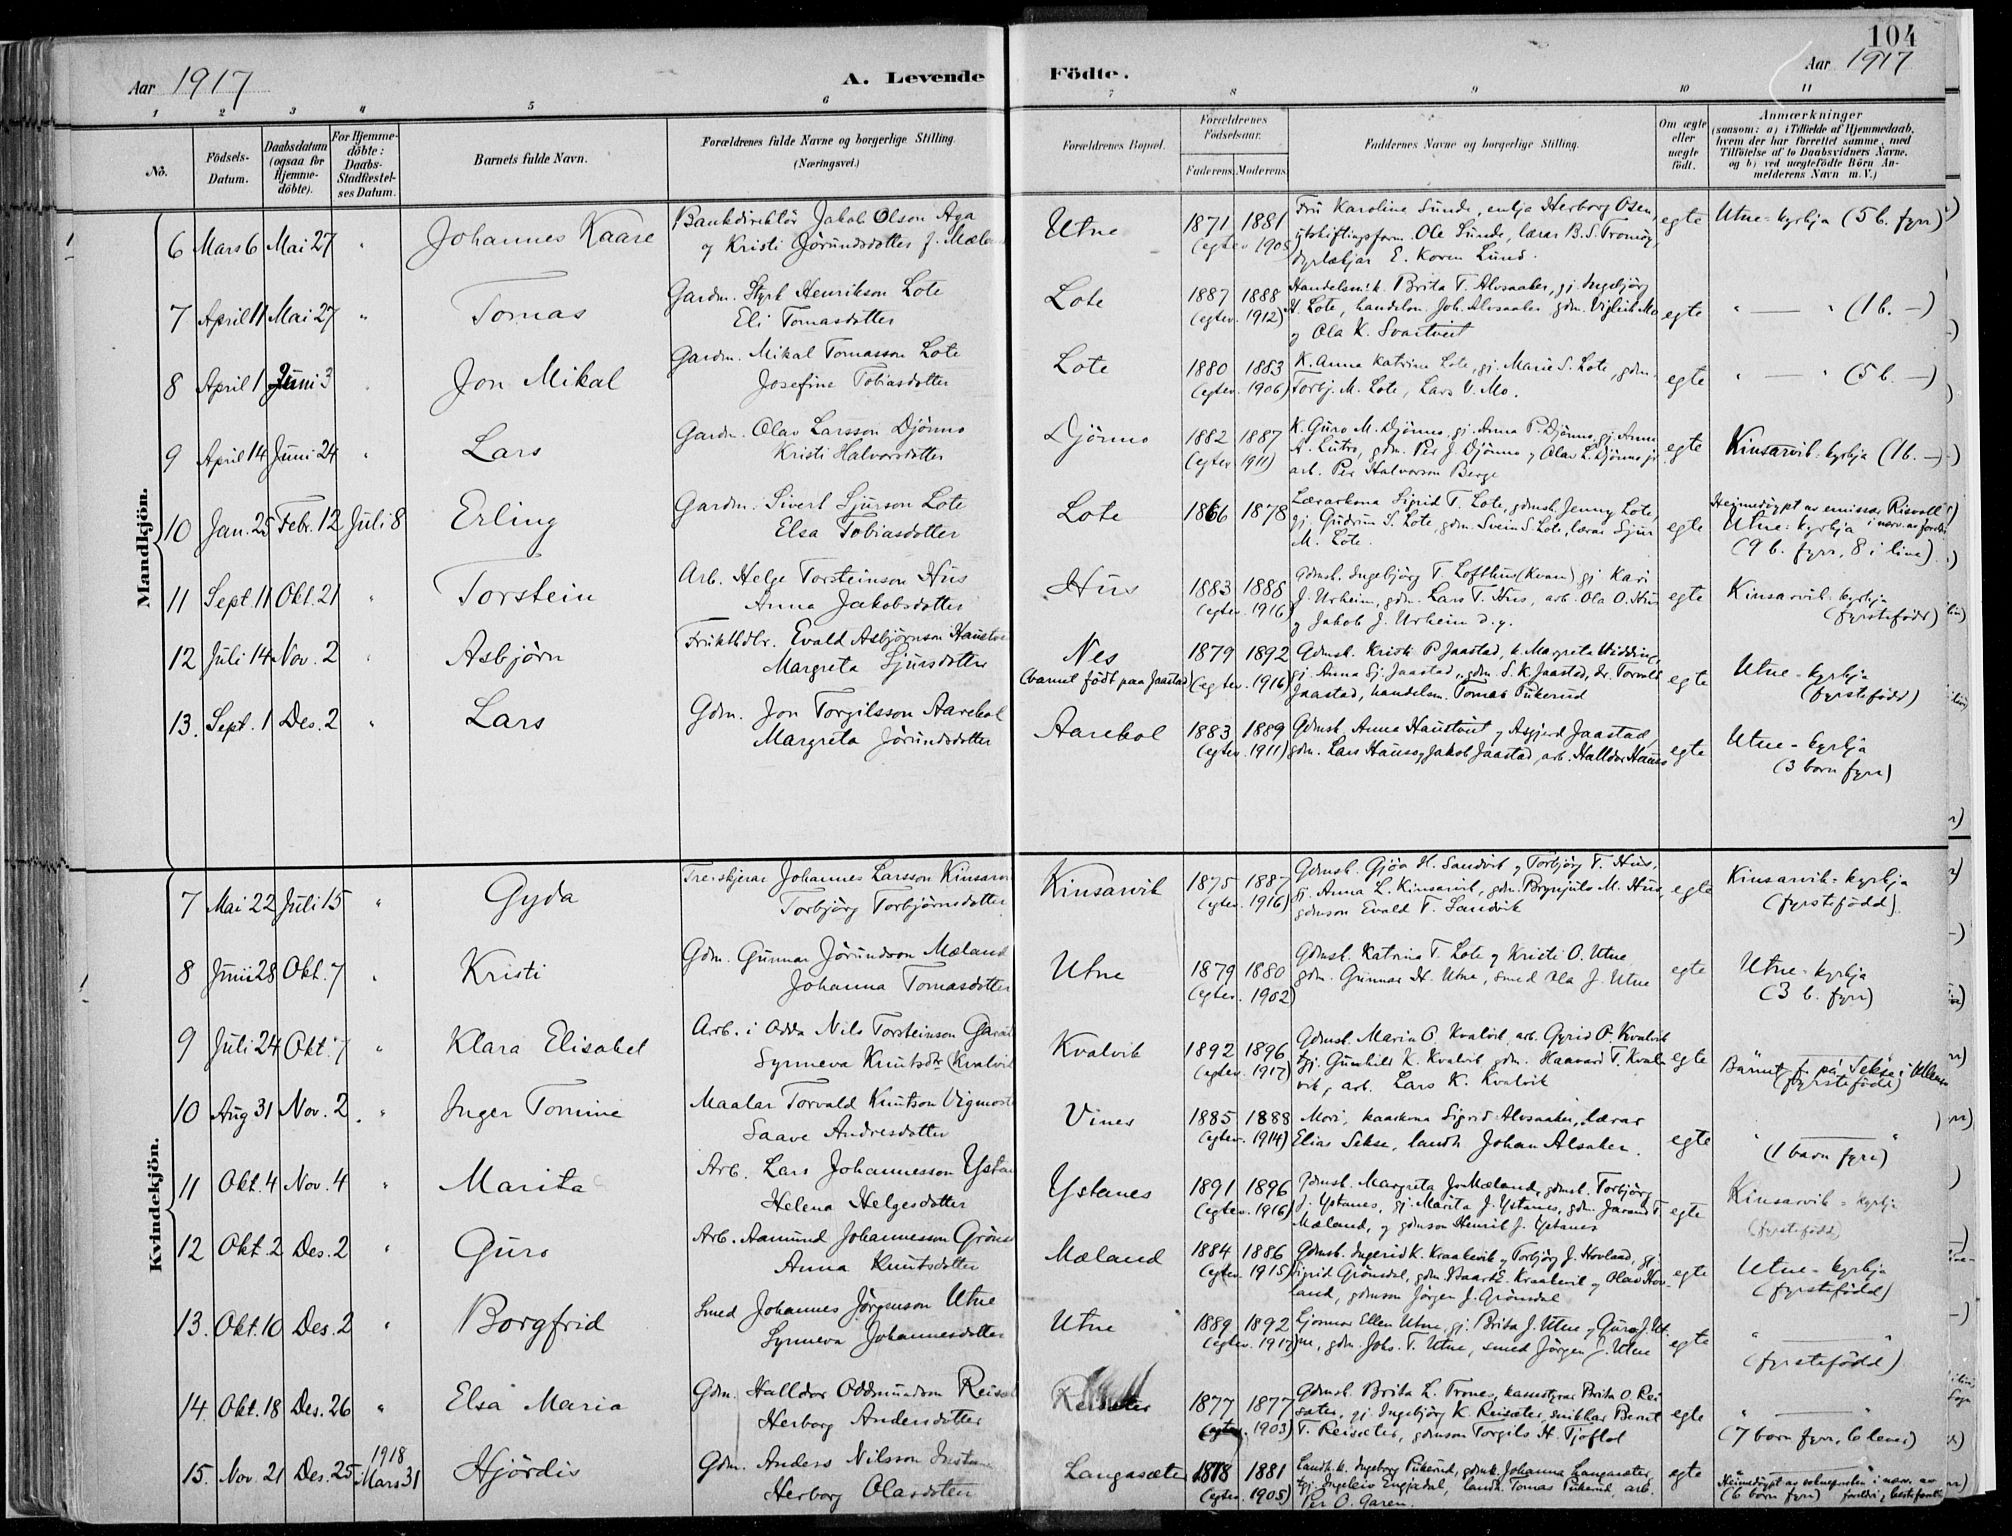 104
Aar 1917
A. Levende
Födte.
Aar 1917
1 2 3 4 5 6 7 8 9 10 11
No.
Födsels-
Datum.
Daabsdatum
(ogsaa for
Hjemme-
döbte).
For Hjemme-
döbte:
Daabs-
Stadfæstel-
ses Datum.
Barnets fulde Navn.
Forældrenes fulde Navne og borgerlige Stilling.
(Næringsvei.)
Forældrenes Bopæl.
Forældrenes
Födselsaar.
Faderens. Moderens.
Faddernes Navne og borgerlige Stilling.
Om ægte
eller
uægte
födt.
Anmærkninger
(saasom: a) i Tilfælde af Hjemmedaab,
hvem der har forrettet samme, med
Tilföielse af to Daabsvidners Navne.
og b) ved uægtefödte Börn An-
melderens Navn m. V.)
Mandkjön.
6 Mars 6 Mai 27 " Johannes Kaare
Bankdirektör Jakob Olson Aga
og Kristi Jörundsdotter f. Mæland
Utne
1871 1881
(egtev. 1905)
Fru Karoline Sunde, enkja Herborg Osen,
utskiftingsform. Ole Sunde, lærar B. S. Tromöy,
dyrlækjar E. Koren Lund.
egte
Utne-kyrkja (5 b. fyrr)
7 April 11 Mai 27 " Tomas
Gardm. Styrk Henrikson Lote
Eli Tomasdotter
Lote
1887 1888
(egtev. 1912)
Handelsm. k. Brita T. Alvsaaker, gj. Ingebjörg
H. Lote, handelsm. Joh. Alvsaaker gdm. Vigleik Mo
og Ola K. Svartveit
egte
" — " (1 b. —)
8 April 1 Juni 3 " Jon Mikal
Gardm. Mikal Tomasson Lote
Josefine Tobiasdotter
Lote
1880 1883
(egtev. 1906)
K. Anna Katrina Lote, gj. Marie S. Lote, gdm.
Torbj. M. Lote, Lars V. Mo.
egte
" — " (5 b. —)
9 April 14 Juni 24 " Lars
Gardm. Olav Larsson Djönno
Kristi Halvorsdotter
Djönno
1882 1887
(egtev. 1911)
K. Guro M. Djönno, gj. Anna P. Djönno, gj. Anna
A. Lutro, gdm. Per J. Djönno og Olav L. Djönno jr.
arb. Per Halvorson Berge
egte
Kinsarvik-kyrkja (1 b. —)
10 Jan. 25 Febr. 12 Juli 8 Erling
Gardm. Sivert Sjurson Lote
Elsa Tobiasdotter
Lote
1866 1878
Lærarkona Sigrid T. Lote, gdmsk. Jenny Lote,
gj. Gudrun S. Lote, gdm. Svein S. Lote, lærar Sjur
M. Lote.
egte
Heimdöypt av emissær Risvoll
Utne-kyrkja i nærv. av foreldri
(9 b. fyrr, 8 i live)
11 Sept. 11 Okt. 21 " Torstein
Arb. Helge Torsteinson Hus
Anna Jakobsdotter
Hus
1883 1888
(egtev. 1916)
Gdmsk. Ingebjörg T. Lofthus (Kvam) gj Kari
J. Urheim, gdm. Lars T. Hus, arb. Ola O. Hus
og Jakob J. Urheim d.y.
egte
Kinsarvik-kyrkja
(fyrstefödd)
12 Juli 14 Nov. 2 " Asbjörn
Frukthdlr. Evald Asbjörnson Haustveit
Margreta Sjursdotter
Nes
(barnet födt paa Jaastad)
1879 1892
(egtev. 1916)
Gdmsk. Kristi P. Jaastad, k. Margreta Widding,
gj. Anna Sj. Jaastad, gdm. S. K. Jaastad, dr. Torvald
Jaastad, handelsm. Tomas Pukerud
egte
Utne-kyrkja
(fyrstefödd)
13. Sept. 1 Des. 2 " Lars
Gdm. Jon Torgilsson Aarekol
Margreta Jörundsdotter
Aarekol
1883 1889
(egtev. 1911)
Gdmsk. Anna Haustveit og Asgjerd Jaastad,
gdm. Lars Hauso og Jakob Jaastad, arb. Halldor Hauso
egte
Utne-kyrkja
(3 born fyrr)
Kvindekjön.
7 Mai 22 Juli 15 " Gyda
Treskjerar Johannes Larsson Kinsarvik
Torbjörg Torbjörnsdotter
Kinsarvik
1875 1887
(egtev. 1916)
Gdmsk. Gjöa H. Sandvik og Torbjörg T. Hus,
gj. Anna L. Kinsarvik, gdm. Brynjulv M. Hus,
gdmson Evald T. Sandvik
egte
Kinsarvik-kyrkja
(fyrstefödd)
8 Juni 28 Okt. 7 " Kristi
Gdm. Gunnar Jörundson Mæland
Johanna Tomasdotter
Utne
1879 1880
(egtev. 1902)
Gdmsk. Katrina T. Lote og Kristi O. Utne
gdm. Gunnar H. Utne, smed Ola J. Utne
egte
Utne-kyrkja
(3 b. fyrr)
9 Juli 24 Okt. 7 " Klara Elisabet
Arb. i Odda Nils Torsteinson
Synneva Knutsdr. (Kvalvik
Kvalvik
1892 1896
(egtev. 1917)
Gdmsk. Maria O. Kvalvik, arb. Gyrid O. Kvalvik
gj. Gunhild K. Kvalvik, gdm. Haavard T. Kval-
vik, arb. Lars K. Kvalvik
egte
Barnet f. på Sekse i Ullensv.
(fyrstefödd)
10 Aug 31 Nov. 2 " Inger Tomine
Maalar Torvald Knutson Vigmostad
Saave Andresdotter
Vines
1885 1888
(egtev. 1914)
Mori, kaarkona Sigrid Alvsaaker, lærar
Elias Sekse, landh. Johan Alsaker.
egte
" — "
(1 barn fyrr)
11 Okt. 4 Nov. 4 " Marita
Arb. Lars Johannesson Ystanes
Helena Helgesdotter
Ystanes
1891 1896
(egtev. 1916)
Gdmsk. Margreta J. Mæland, gdmsk. Torbjörg
J. Ystanes, gj. Marita J. Ystanes, gdm. Jarand T.
Mæland, og gdmson Henrik J. Ystanes
egte
Kinsarvik-kyrkja
(fyrstefödd)
12 Okt. 2 Des. 2 " Guro
Arb. Aamund Johannesson Grönsdal
Anna Knutsdotter
Mæland
1884 1886
(egtev. 1915)
Gdmsk. Ingerid K. Kraakevik og Torbjörg J. Hovland, gj.
Sigrid Grönsdal, gdm. Baard E. Kraakevik og Olav Hov-
land, gdmson Jörgen J. Grönsdal
egte
Utne-kyrkja
(fyrstefödd)
13. Okt. 10 Des. 2 " Borgfrid
Smed Johannes Jörgenson Utne
Synneva Johannesdotter
Utne
1889 1892
(egtev. 1917)
Ljosmor Ellen Utne, gj. Brita J. Utne og Guro J. Ut-
ne, gdm. Johs. T. Utne, smed Jörgen J. Utne
egte
" — "
(fyrstefödd)
14. Okt. 18 Des. 26 " Elsa Maria
Gdm. Halldor Oddmundson Reisæter
Herborg Andersdotter
Reisæter
1877 1877
(egtev. 1903)
Gdmsk. Brita L. Trones, kamstyrar Brita O. Rei-
sæter, gj. Ingebjörg K. Reisæter, snikkar Bernt
T. Reisæter, gdmson Torgils H. Tjoflot
egte
" — "
(7 born fyrr, 6 lever)
15. Nov. 21 Des. 25 1918 Mars 31 Hjördis
Gdm. Anders Nilsson
Herborg Olavsdotter
Langasæter
1878 1881
(egtev. 1905)
Landh. k. Ingeborg Pukerud, gdmk. Johanna Langasæter,
gj. Ingeleiv Engjadal, landh. Tomas Pukerud, arb.
Per O. Garen.
egte
(6 born fyrr)